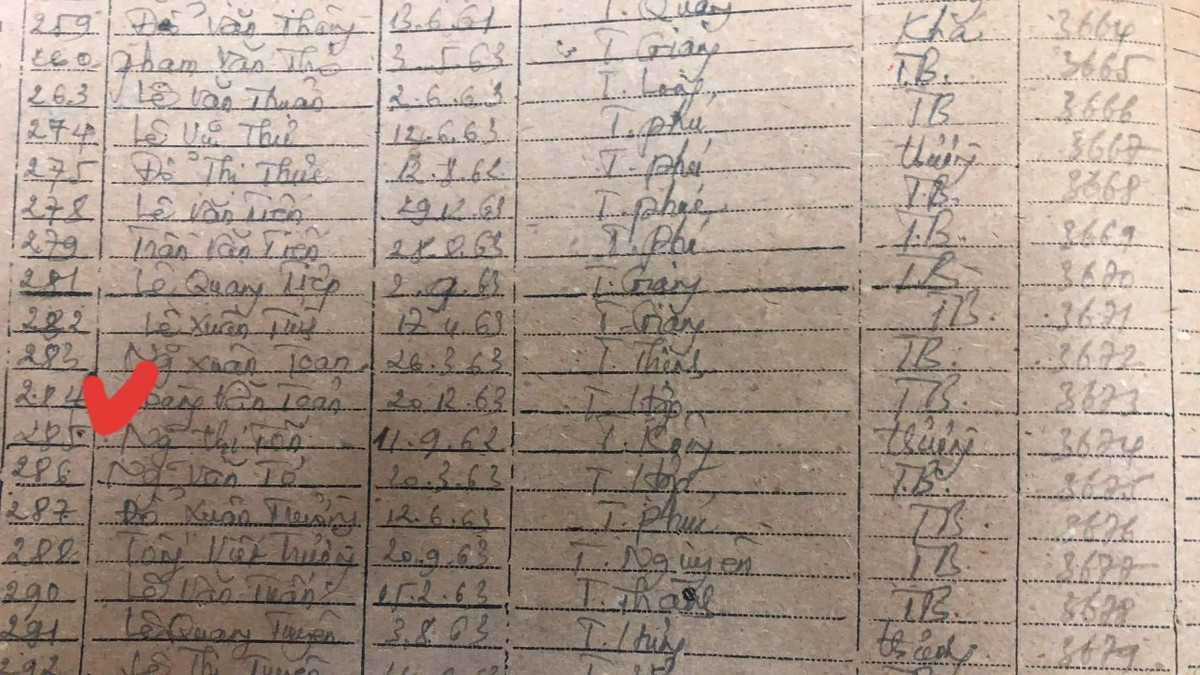 259 Đỗ Văn Thông 13.6.61 T. Quang Khá 3664
260 Phạm Văn Thọ 3.5.63 T Giang TB. 3665
263 Lê Văn Thuấn 2.6.63 T. TB 3666
274 Lê Thử 12.6.63 T. phú 3667
275 Đỗ Thị Thực 12.8.62 T. phú TB. 3668
278 Lê Văn Tiến 29 12.63 T. phúc T.B. 3669
279 Trần Văn Tiến 28.8.63 T. Phú TB 3670
281 Lê Quang Tiếp 2.9.63 T. Giang TB. 3671
282 Lê Xuân 17 4 63 T. Giang TB. 3672
283 Ng Xuân Toan 26.3.63 T. Thịnh TB. 3673
284 Văn Toản 20.12.63 T. thưởng 3674
285 Ng Thị Tốn 11.9.62 T. T.B. 3675
286 Ng Văn Tố 20.3.63 T. TB. 3676
287 Đỗ Xuân Tưởng 12.6.63 T. phúc TB. 3677
288 Tống Viết Tưởng 20.9.63 T. Nguyên TB. 3678
290 Lê Văn Tuấn 15.2.63 T. Thành 3679
291 Lê Quang Tuyên 3.8.63 T. Hưng
292 Lê Thị Tuyến